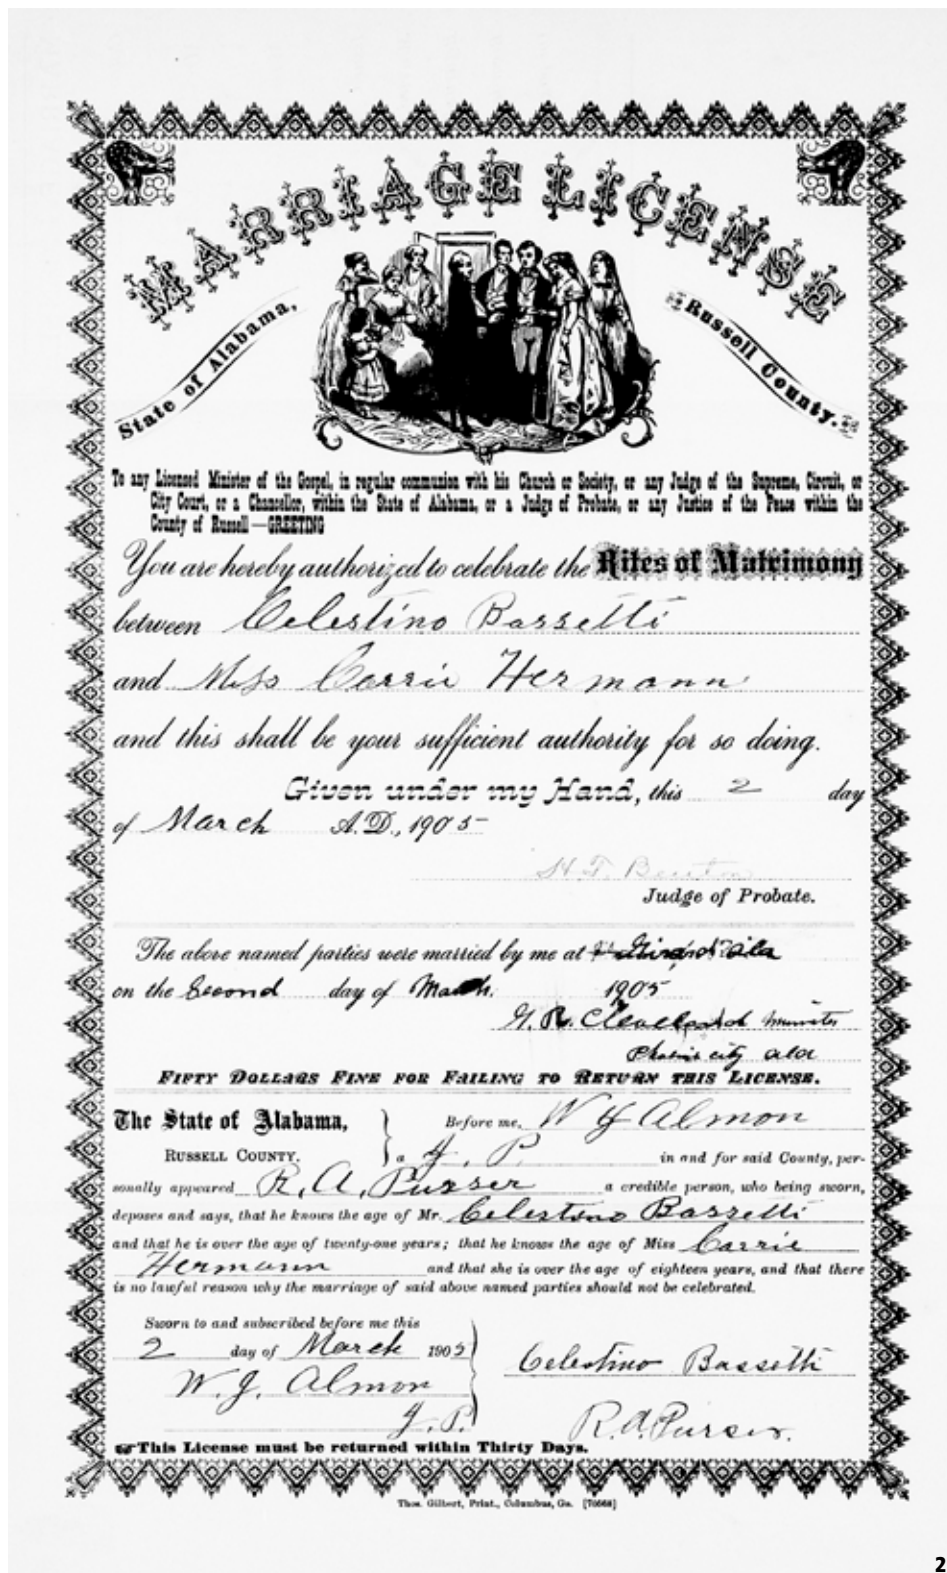 MARRIAGE LICENSE
State of Alabama,
Russell County.
To any Licensed Minister of the Gospel, in regular communion with his Church or Society, or any Judge of the Supreme, Circuit, or
City Court, or a Chancellor, within the State of Alabama, or a Judge of Probate, or any Justice of the Peace within the
County of Russell—GREETING
You are hereby authorized to celebrate the Rites of Matrimony
between Celestino Bassetti
and Miss Carrie Hermann
and this shall be your sufficient authority for so doing.
Given under my Hand, this 2 day
of March A.D., 1905
H. T. Benton
Judge of Probate.
The above named parties were married by me at Girard Ala
on the Second day of March. 1905
Minister
city ala
FIFTY DOLLARS FINE FOR FAILING TO RETURN THIS LICENSE.
The State of Alabama,
RUSSELL COUNTY.
Before me, W J Almon
a J. P. in and for said County, per-
sonally appeared R. A. Purser a credible person, who being sworn,
deposes and says, that he knows the age of Mr. Celestino Bassetti
and that he is over the age of twenty-one years; that he knows the age of Miss Carrie
Hermann and that she is over the age of eighteen years, and that there
is no lawful reason why the marriage of said above named parties should not be celebrated.
Sworn to and subscribed before me this
2 day of March 1905
W. J. Almon
J. P.
Celestino Bassetti
R. A. Purser.
This License must be returned within Thirty Days.
Thos. Gilbert, Print., Columbus, Ga. [70668]
2